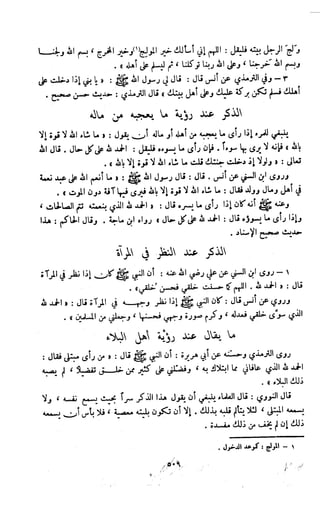 ولج الرجل بيته فليقل : اللهم إني أسألك خير المولج ١ وخير المخرج ، بسم الله ولجنا
وبسم الله خرجنا ، وعلى الله ربنا توكلنا ، ثم ليسلم على أهله » .
٣ - وفي الترمذي عن أنس قال : قال لي رسول الله ﷺ : « يا بني إذا دخلت على
أهلك فسلم تكن بركة عليك وعلى أهل بيتك » قال الترمذي : حديث حسن صحيح .
الذكر عند رؤية ما يعجبه من ماله
ينبغي للمرء إذا رأى ما يعجبه من أهله أو ماله أن يقول : « ما شاء الله لا قوة إلا
بالله » فإنه لا يرى بها سوءاً . فإن رأى ما يسوءه فليقل : الحمد لله على كل حال . قال الله
تعالى : « ولولا إذ دخلت جنتك قلت ما شاء الله لا قوة إلا بالله » .
وروى ابن السني عن أنس . قال : قال رسول الله ﷺ : « ما أنعم الله على عبد نعمة
في أهل ومال وولد فقال : ما شاء الله لا قوة إلا بالله فيرى فيها آفة دون الموت » .
وعنه ﷺ أنه كان إذا رأى ما يسره قال : « الحمد لله الذي بنعمته تتم الصالحات ،
وإذا رأى ما يسوؤه قال : الحمد لله على كل حال » رواه ابن ماجة . وقال الحاكم : هذا
حديث صحيح الإسناد .
الذكر عند النظر في المرآة
١ - روى ابن السني عن علي رضي الله عنه : أن النبي ﷺ كان إذا نظر في المرآة
قال : « الحمد لله . اللهم كما حسنت خلقي فحسن خلقي » .
وروي عن أنس قال : كان النبي ﷺ إذا نظر وجهه في المرآة قال : « الحمد لله
الذي سوّى خلقي فعدله ، وكرم صورة وجهي فحسنها ، وجعلني من المسلمين » .
ما يقال عند رؤية أهل البلاء
روى الترمذي وحسنه عن أبي هريرة : أن النبي ﷺ قال : « من رأى مبتلى فقال :
الحمد لله الذي عافاني مما ابتلاك به ، وفضلني على كثير ممن خلق تفضيلا ، لم يصبه
ذلك البلاء » .
قال النووي : قال العلماء ينبغي أن يقول هذا الذكر سراً بحيث يسمع نفسه ، ولا
يسمعه المبتلى ، لئلا يتألم قلبه بذلك . إلا أن تكون بليته معصية ، فلا بأس أن يسمعه
ذلك إن لم يخف من ذلك مفسدة .
١ - المولج : كموعد الدخول .
٥٠٩